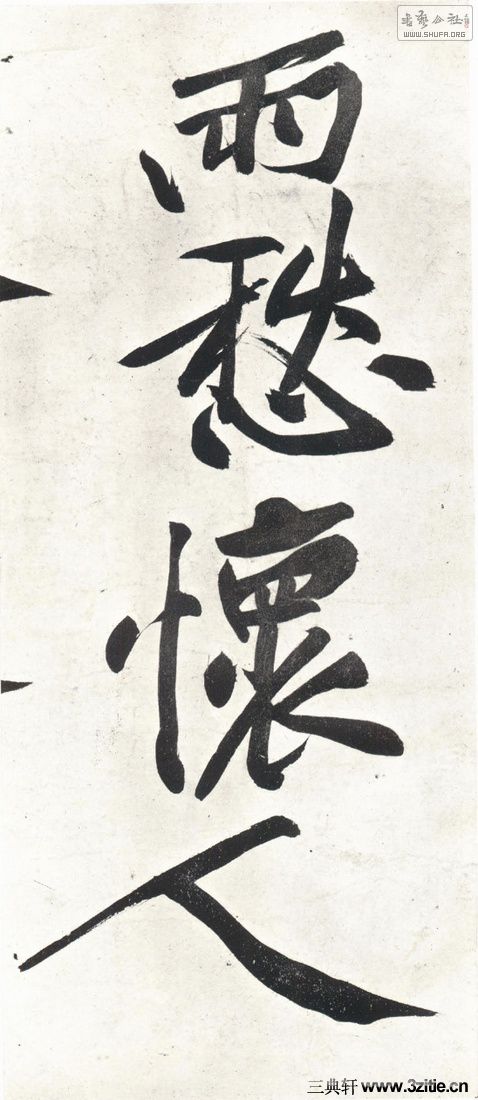 書藝公社
WWW.SHUFA.ORG
雨愁懷人
三典轩 www.3zitie.cn